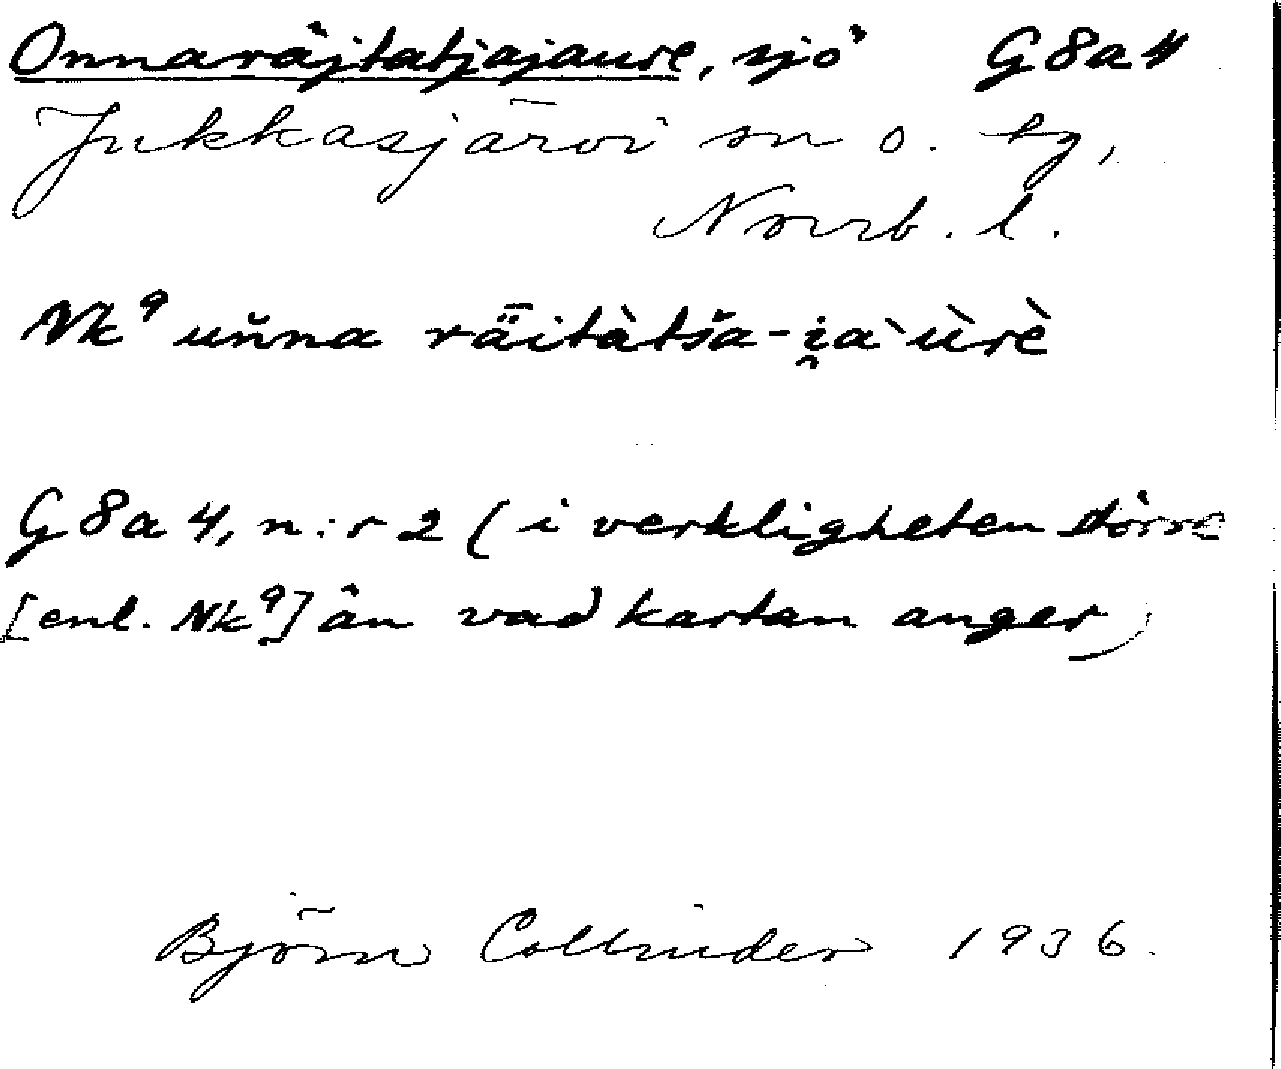 Onnaräjtatjajaure, sjö G8a4
Jukkasjärvi sn o. tg,
Norrb. l.
Nk⁹ uňna rǟitàtša-i̯a`ùrè
G8a4, n:r 2 (i verkligheten större
[enl. Nk⁹] än vad kartan anger)
Björn Collinder 1936.